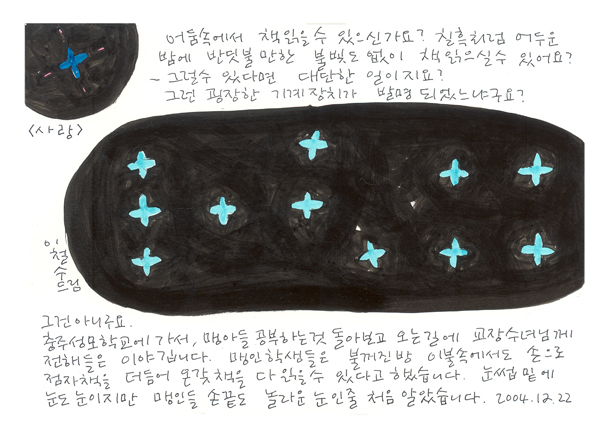 어둠속에서 책읽을수 있으신가요? 칠흑처럼 어두운
밤에 반딧불만한 불빛도없이 책읽으실수 있어요?
~ 그럴수 있다면 대단한 일이지요?
그런 굉장한 기계장치가 발명되었느냐구요?
<사랑>
이철수드림
그건아니구요.
충주성모학교에가서, 맹아들공부하는것 돌아보고 오는길에 교장수녀님께
전해들은 이야깁니다. 맹인학생들은 불꺼진방 이불속에서도 손으로
점자책을 더듬어 온갖책을 다읽을수 있다고 했습니다. 눈썹밑에
눈도눈이지만 맹인들 손끝도 놀라운눈인줄 처음알았습니다. 2004.12.22